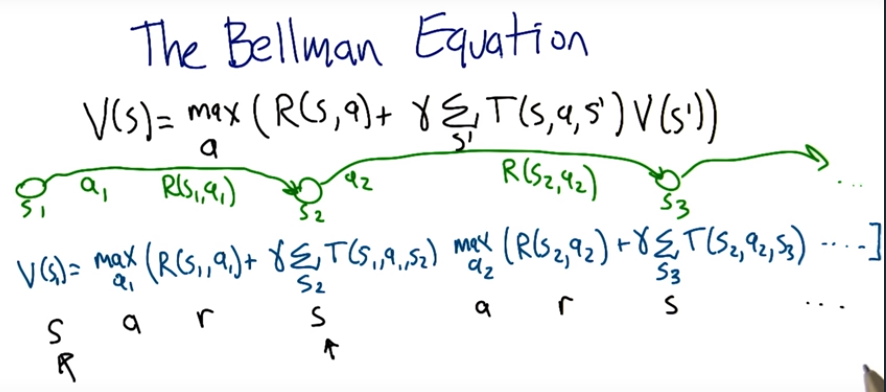 The Bellman Equation
V(s) = max_a (R(s,a) + γ Σ_s' T(s,a,s') V(s'))
s₁ a₁ R(s₁,a₁) s₂ a₂ R(s₂,a₂) s₃ ...
V(s₁) = max_a₁ (R(s₁,a₁) + γ Σ_s₂ T(s₁,a₁,s₂) max_a₂ (R(s₂,a₂) + γ Σ_s₃ T(s₂,a₂,s₃) ····]
s a r s a r s ...